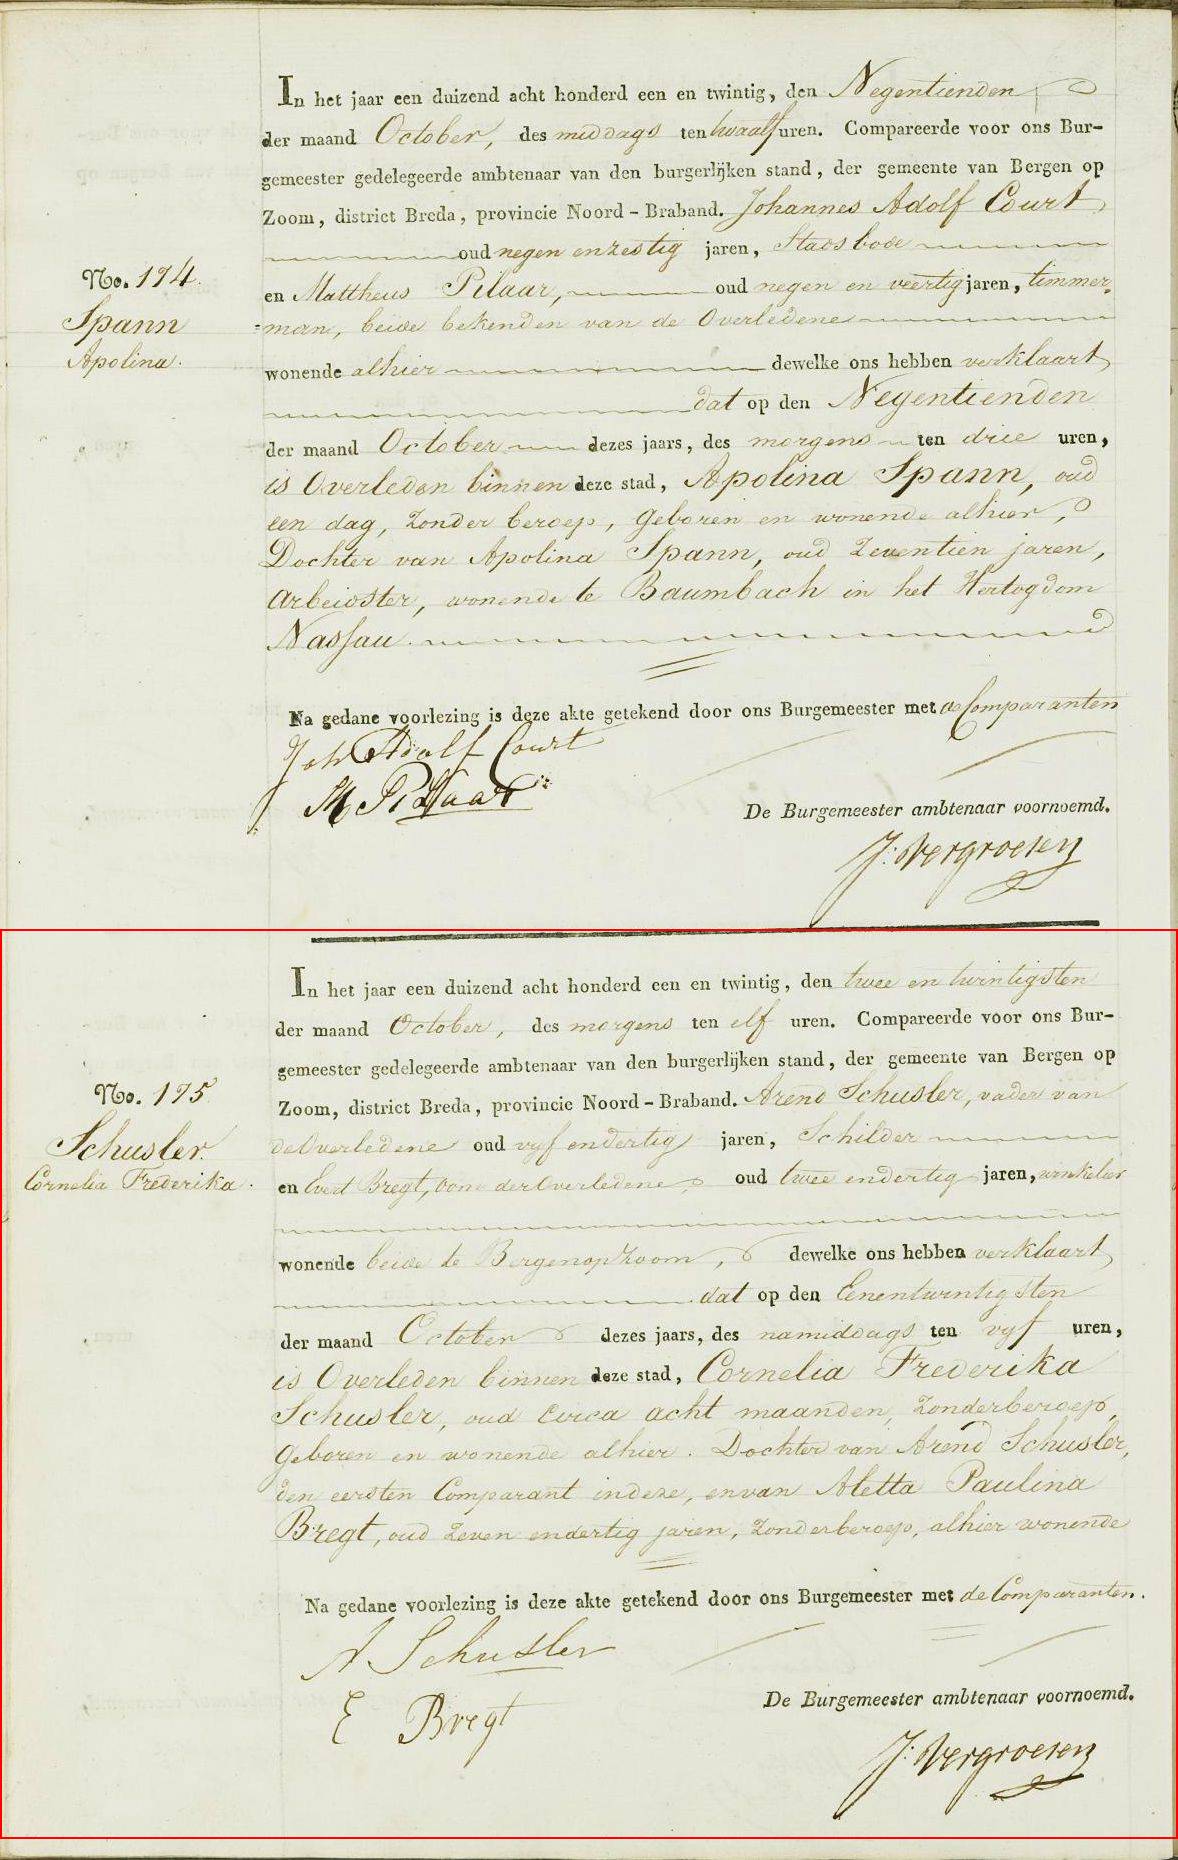 In het jaar een duizend acht honderd een en twintig, den Negentienden
der maand October, des middags ten twaalf uren. Compareerde voor ons Bur-
gemeester gedelegeerde ambtenaar van den burgerlijken stand, der gemeente van Bergen op
Zoom, district Breda, provincie Noord-Braband. Johannes Adolf Court
oud negen en zestig jaren, Stads bode
No. 174.
en Mattheus Pilaar, oud negen en veertig jaren, timmer-
Spann
=man, beide bekenden van de Overledene
Apolina.
wonende alhier dewelke ons hebben verklaart
dat op den Negentienden
der maand October dezes jaars, des morgens ten drie uren,
is Overleden binnen deze stad, Apolina Spann, oud
een dag, zonder beroep, Geboren en wonende alhier,
Dochter van Apolina Spann, oud Zeventien jaren,
Arbeidster, wonende te Baumbach in het Hertogdom
Nassau.
Na gedane voorlezing is deze akte getekend door ons Burgemeester met de Comparanten
Joh Adolf Court
M Pillaar
De Burgemeester ambtenaar voornoemd.
J. Vergroesen
In het jaar een duizend acht honderd een en twintig, den twee en twintigsten
der maand October, des morgens ten elf uren. Compareerde voor ons Bur-
gemeester gedelegeerde ambtenaar van den burgerlijken stand, der gemeente van Bergen op
No. 175
Zoom, district Breda, provincie Noord-Braband. Arend Schusler, vader van
Schusler.
de Overledene oud vyf en dertig jaren, Schilder
Cornelia Frederika.
en Evert Bregt, oom der Overledene, oud twee en dertig jaren, winkelier
wonende beide te Bergenopzoom, dewelke ons hebben verklaart
dat op den Eenentwintigsten
der maand October dezes jaars, des namiddags ten vyf uren,
is Overleden binnen deze stad, Cornelia Frederika
Schusler, oud circa acht maanden, Zonder beroep,
Geboren en wonende alhier. Dochter van Arend Schusler,
den eersten Comparant in deze, en van Aletta Paulina
Bregt, oud zeven en dertig jaren, Zonder beroep, alhier wonende
Na gedane voorlezing is deze akte getekend door ons Burgemeester met de Comparanten.
A Schusler
E Bregt
De Burgemeester ambtenaar voornoemd.
J. Vergroesen